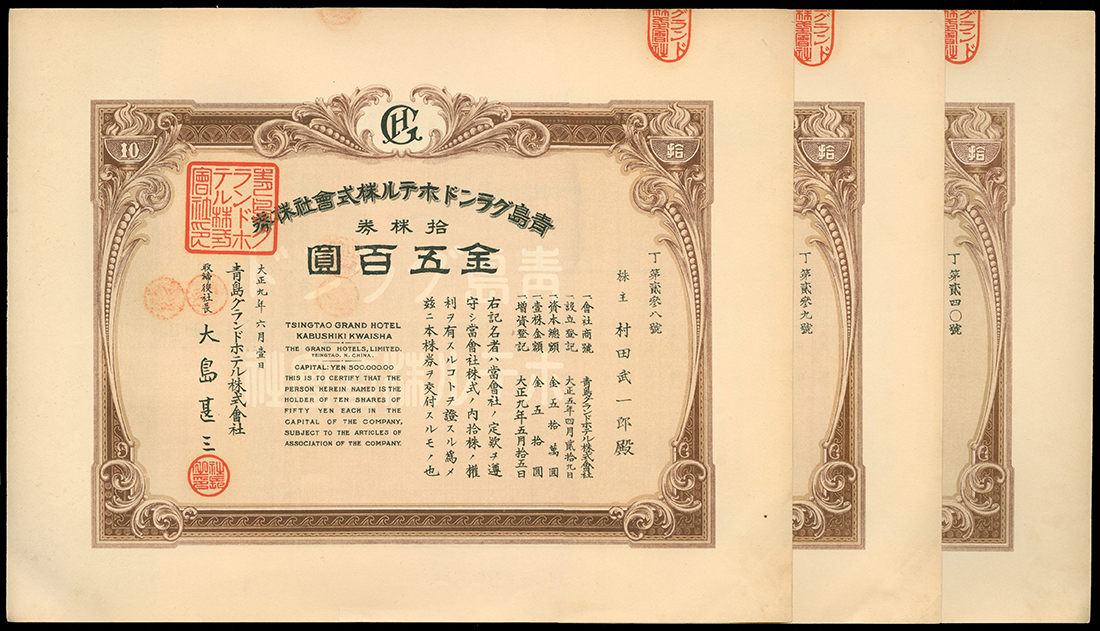 GH
10
青島グランドホテル株式會社株券
拾株券
金五百圓
丁第貳參八號
株主 村田武一郎殿
一會社商號 青島グランドホテル株式會社
一設立登記 大正五年四月貳拾九日
一資本總額 金五拾萬圓
一壹株金額 金五拾圓
一增資登記 大正九年五月拾五日
右記名者ハ當會社ノ定欵ヲ遵
守シ當會社株式ノ内拾株ノ權
利ヲ有スルコトヲ證スル爲メ
玆ニ本株券ヲ交付スルモノ也
TSINGTAO GRAND HOTEL
KABUSHIKI KWAISHA
THE GRAND HOTELS, LIMITED.
TSINGTAO, N. CHINA.
CAPITAL: YEN 500,000.00
THIS IS TO CERTIFY THAT THE
PERSON HEREIN NAMED IS THE
HOLDER OF TEN SHARES OF
FIFTY YEN EACH IN THE
CAPITAL OF THE COMPANY,
SUBJECT TO THE ARTICLES OF
ASSOCIATION OF THE COMPANY.
大正九年六月壹日
青島グランドホテル株式會社
取締役社長 大島甚三
青島グランドホテル株式會社
拾
丁第貳參九號
拾
丁第貳四〇號
拾